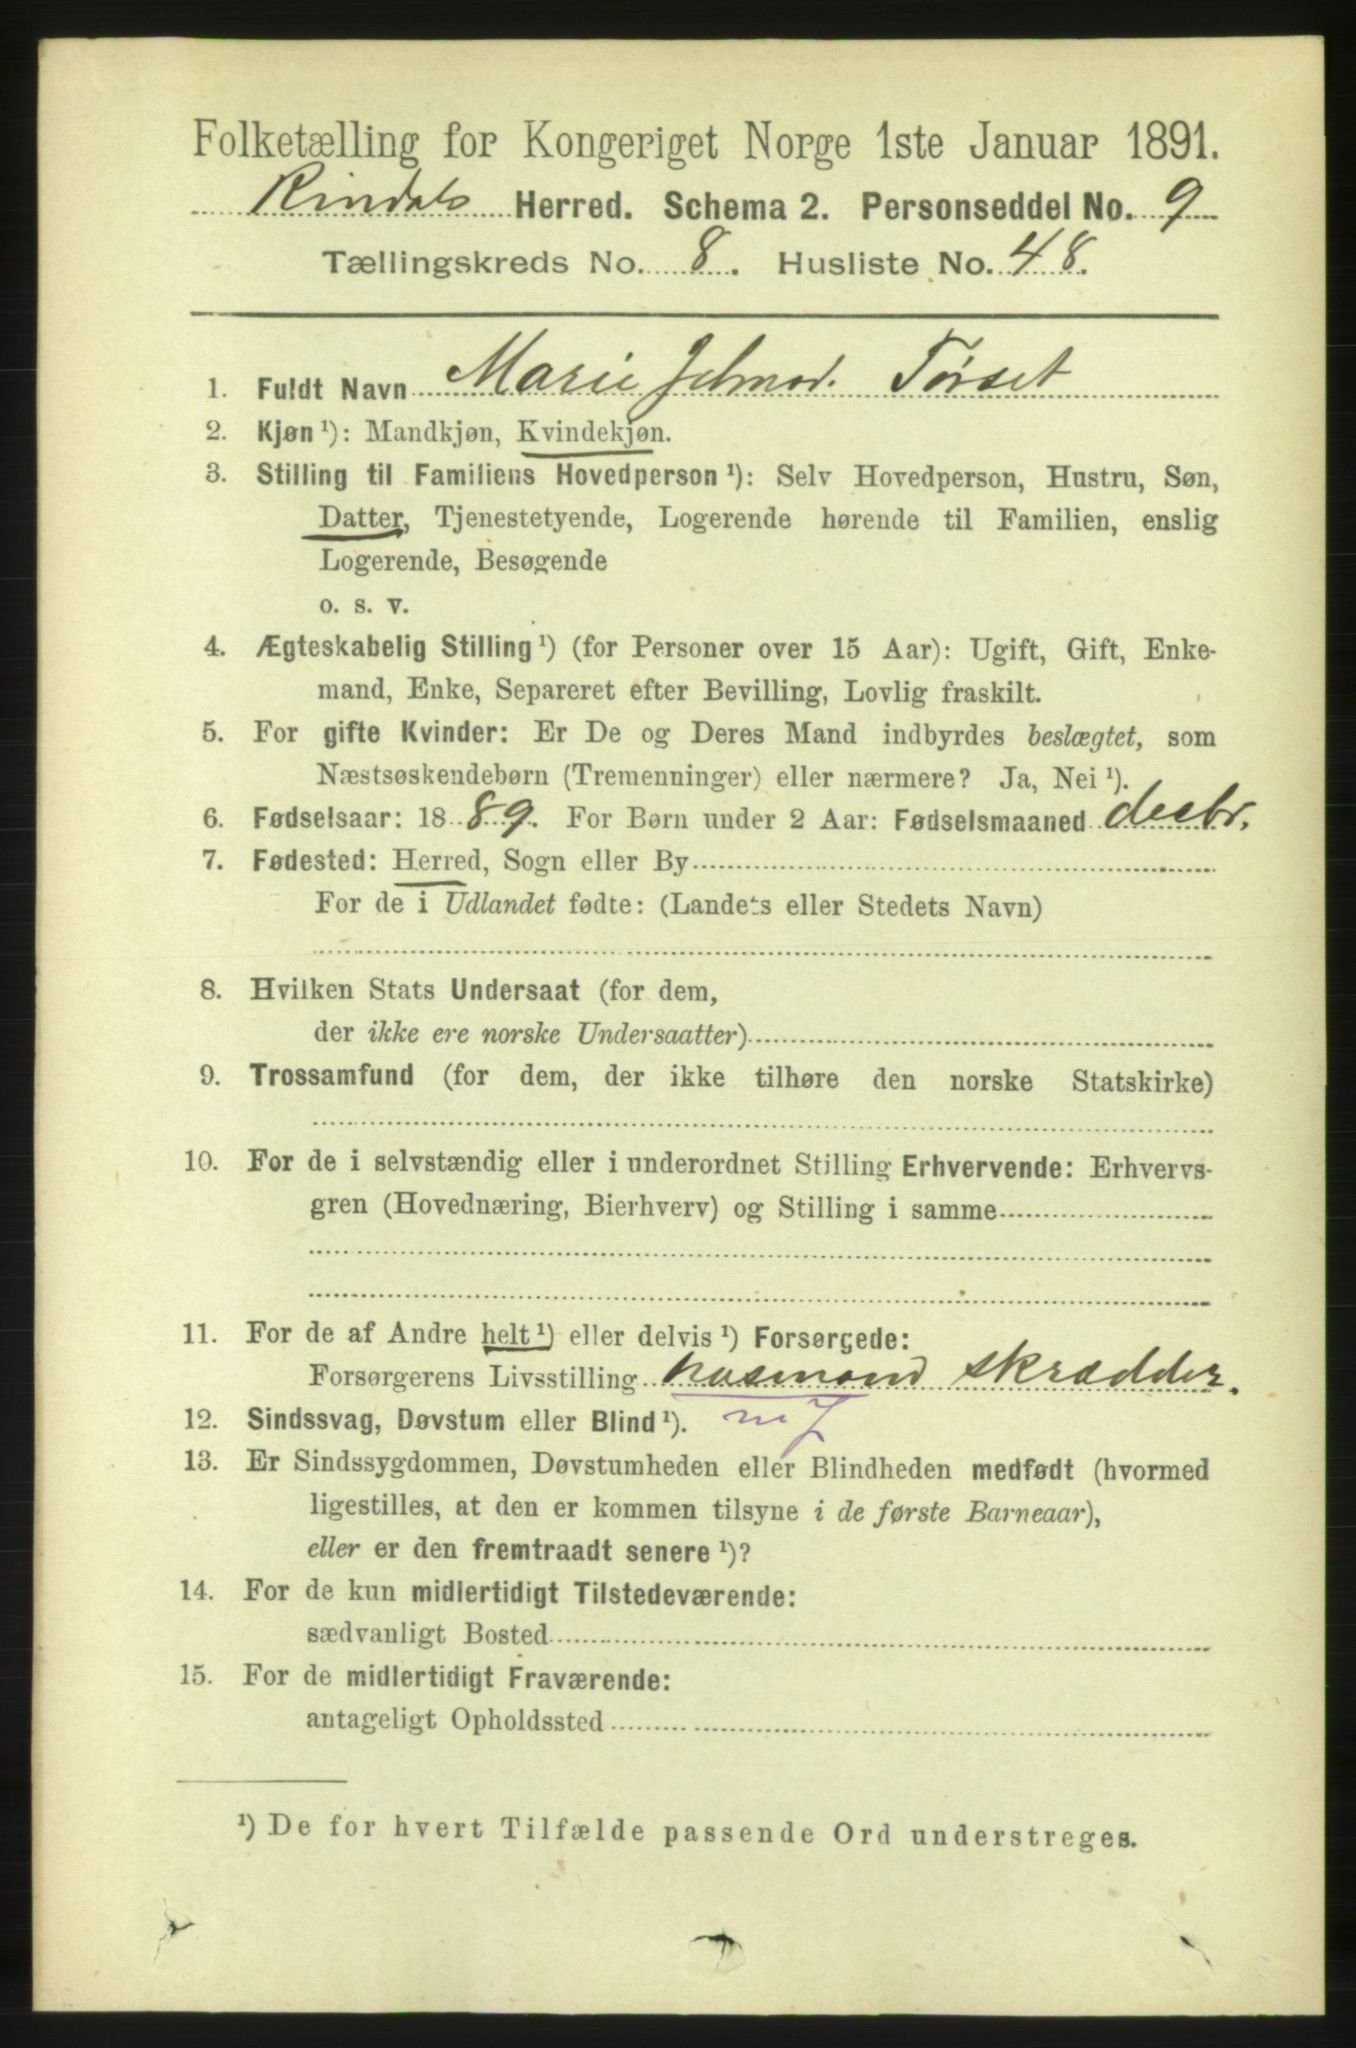 Folketælling for Kongeriget Norge 1ste Januar 1891.
Rindals Herred. Schema 2. Personseddel No. 9
Tællingskreds No. 8. Husliste No. 48.
1. Fuldt Navn Marie Tørset
2. Kjøn ¹): Mandkjøn, Kvindekjøn.
3. Stilling til Familiens Hovedperson ¹): Selv Hovedperson, Hustru, Søn,
Datter, Tjenestetyende, Logerende hørende til Familien, enslig
Logerende, Besøgende
o. s. v.
4. Ægteskabelig Stilling ¹) (for Personer over 15 Aar): Ugift, Gift, Enke-
mand, Enke, Separeret efter Bevilling, Lovlig fraskilt.
5. For gifte Kvinder: Er De og Deres Mand indbyrdes beslægtet, som
Næstsøskendebørn (Tremenninger) eller nærmere? Ja, Nei ¹).
6. Fødselsaar: 1889. For Børn under 2 Aar: Fødselsmaaned decbr.
7. Fødested: Herred, Sogn eller By
For de i Udlandet fødte: (Landets eller Stedets Navn)
8. Hvilken Stats Undersaat (for dem,
der ikke ere norske Undersaatter)
9. Trossamfund (for dem, der ikke tilhøre den norske Statskirke)
10. For de i selvstændig eller i underordnet Stilling Erhvervende: Erhvervs-
gren (Hovednæring, Bierhverv) og Stilling i samme
11. For de af Andre helt ¹) eller delvis ¹) Forsørgede:
Forsørgerens Livsstilling husmand skrædder.
12. Sindssvag, Døvstum eller Blind ¹).
13. Er Sindssygdommen, Døvstumheden eller Blindheden medfødt (hvormed
ligestilles, at den er kommen tilsyne i de første Barneaar),
eller er den fremtraadt senere ¹)?
14. For de kun midlertidigt Tilstedeværende:
sædvanligt Bosted
15. For de midlertidigt Fraværende:
antageligt Opholdssted
¹) De for hvert Tilfælde passende Ord understreges.